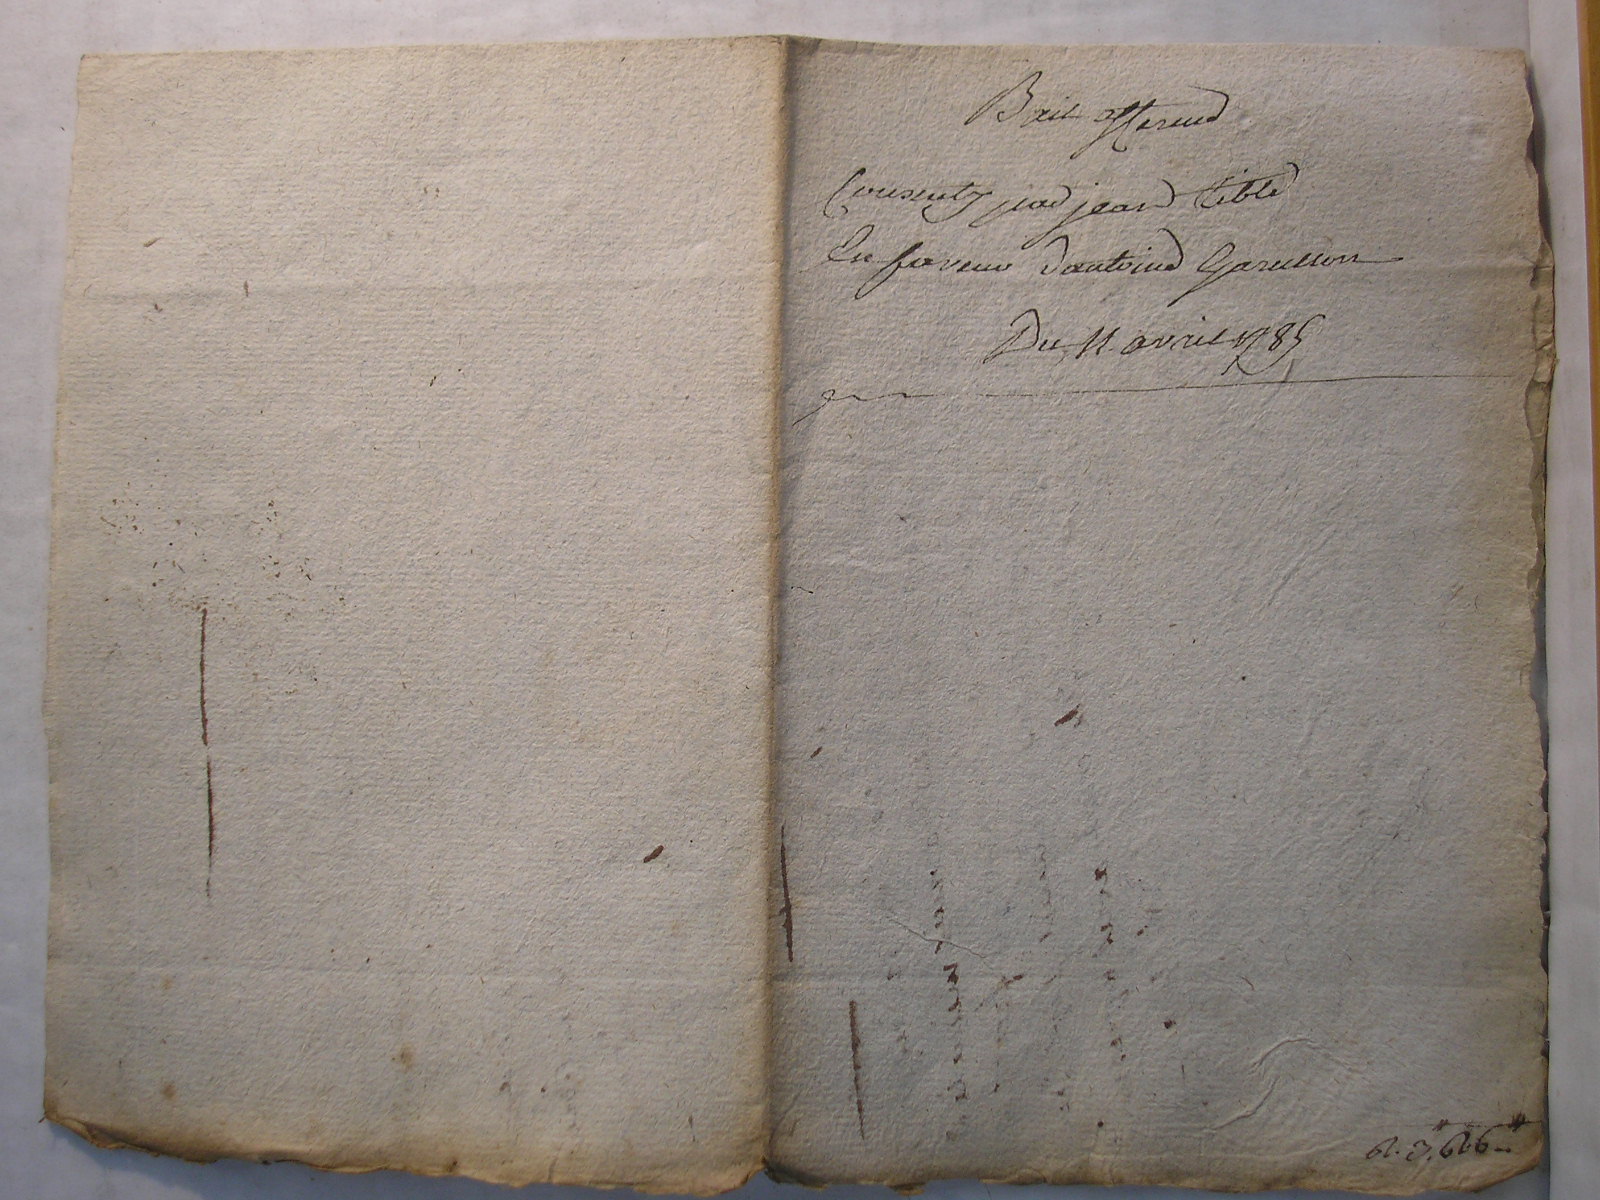 Bail afferme
Consenty par jean Tible
En faveur d'antoine Garullon
Du 11 avril 1785